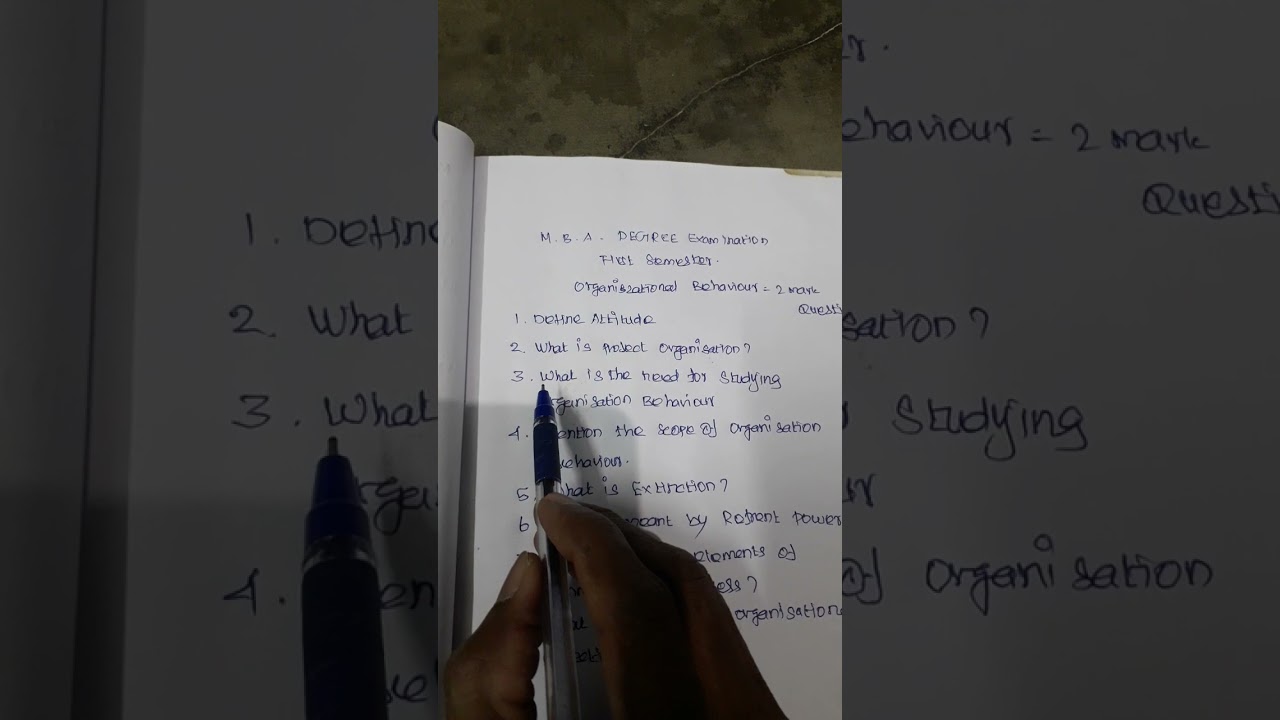 M.B.A. DEGREE Examination
First Semester.
Organisational Behaviour = 2 mark
Questi
1. Define Attitude
2. What is project organisation?
3. What is the need for studying
organisation Behaviour
4. mention the scope of organisation
Behaviour.
5. What is Extinction?
6 meant by Refrent power
elements of
ess?
organisation